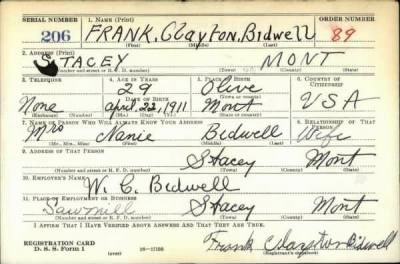 SERIAL NUMBER 1. NAME (Print) ORDER NUMBER
206 FRANK, Clayton, Bidwell 89
(First) (Middle) (Last)
2. ADDRESS (Print)
STACEY MONT
(Number and street or R. F. D. number) (Town) (County) (State)
3. TELEPHONE 4. AGE IN YEARS 5. PLACE OF BIRTH 6. COUNTRY OF CITIZENSHIP
29 Olive
DATE OF BIRTH
None April 22, 1911 Mont USA
(Exchange) (Number) (Mo.) (Day) (Yr.) (State or country)
7. NAME OF PERSON WHO WILL ALWAYS KNOW YOUR ADDRESS 8. RELATIONSHIP OF THAT PERSON
Mrs Nanie Bidwell Wife
(Mr., Mrs., Miss) (First) (Middle) (Last)
9. ADDRESS OF THAT PERSON
Stacey Mont
(Number and street or R. F. D. number) (Town) (County) (State)
10. EMPLOYER'S NAME
W. C. Bidwell
11. PLACE OF EMPLOYMENT OR BUSINESS
Sawmill Stacey Mont
(Number and street or R. F. D. number) (Town) (County) (State)
I AFFIRM THAT I HAVE VERIFIED ABOVE ANSWERS AND THAT THEY ARE TRUE.
REGISTRATION CARD
D. S. S. Form 1 Frank Clayton Bidwell
(Registrant's signature)